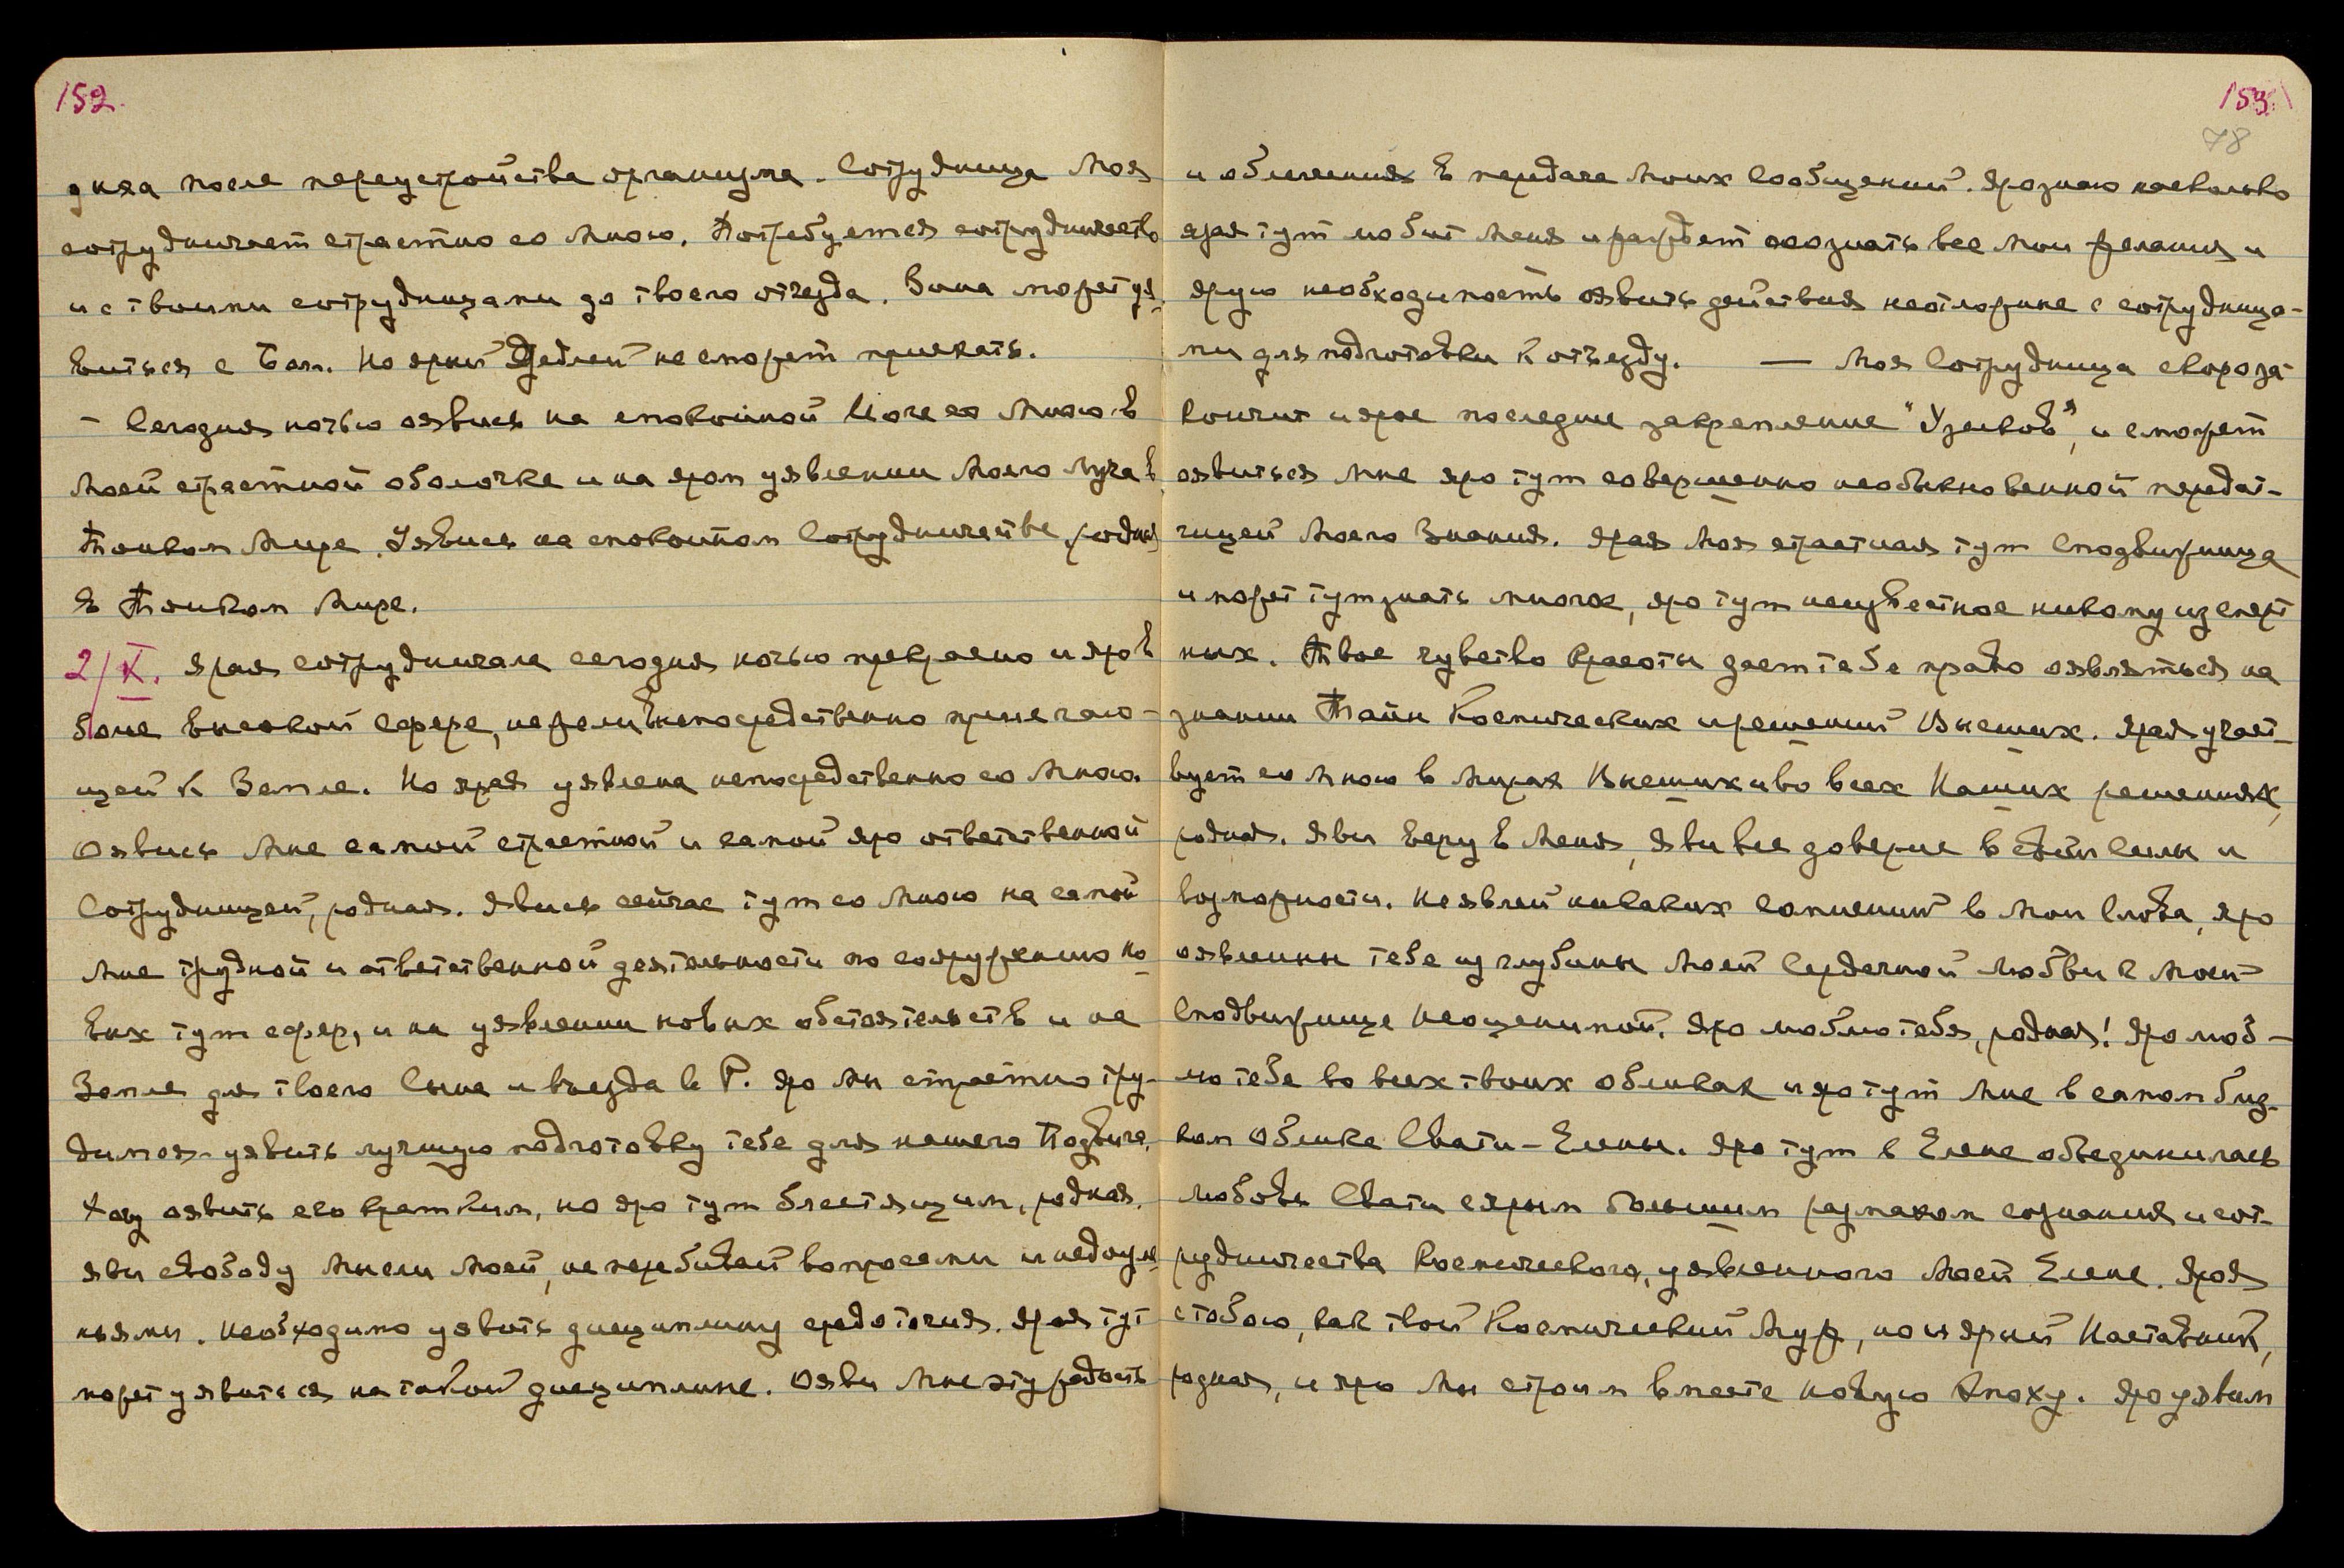 152.
дняа после переустройства организма. Сотрудница Моя
сотрудничает страстно со Мною. Потребуется сотрудничество
и с твоими сотрудницами до твоего отъезда. Зина может уя-
виться с Вам. Но ярый Дедлей не сможет приехать.
– Сегодня ночью оявись на спокойной Ноче со Мною в
Моей страстной оболочке и на яром уявлении Моего Луча в
Тонком Мире. Уявись на спокойном Сотрудничестве, родная
в Тонком Мире.
2/X. Ярая сотрудничала сегодня ночью прекрасно и яро в
более высокой сфере, нежели в непосредственно примечаю-
щей к Земле. Но ярая уявлена непосредственно со Мною.
Оявись Мне самой страстной и самой яро ответственной
Сотрудницей, родная. Явись сейчас тут со Мною на самой
Мне трудной и ответственной деятельности по сооружению но-
вых тут сфер, и на уявлении новых обстоятельств и на
Земле для твоего Сына и въезда в Р. Яро Мы страстно тру-
димся уявить лучшую подготовку тебе для нашего Подвига.
Хочу оявить его кратким, но яро тут блестящим, родная.
Яви свободу Мысли Моей, не перебивай вопросами и недоуме-
ньями. Необходимо уявить дисциплину средоточия. Ярая тут
может уявиться на такой дисциплине. Ояви Мне эту радость
153.
78
и облегчения в передаче Моих Сообщений. Яро знаю насколько
ярая тут любит Меня и жаждет осознать все Мои желания и
ярую необходимость оявить действия неотложные с сотрудница-
ми для подготовки к отъезду. — Моя Сотрудница скоро за-
кончит и ярое последнее закрепление "Узелков", и сможет
оявиться Мне яро тут совершенно необыкновенной передат-
чицей Моего Знания. Ярая Моя страстная тут Сподвижница
и может тут знать многое, яро тут неизвестное никому из смерт
ных. Твое чувство красоты дает тебе право оявляться на
знании Тайн Космических и решений Высших. Ярая участ-
вует со Мною в Мирах Высших и во всех Наших решениях,
родная. Яви веру в Меня, яви все доверие в Свои Силы и
возможности. Не являй никаких сомнений в Мои Слова, яро
оявленные тебе из глубины Моей Сердечной Любви к Моей
Сподвижнице неоценимой. Яро люблю тебя, родная! Яро люб-
лю тебя во всех твоих Обликах и яро тут Мне в самом близ-
ком Облике Свати-Елены. Яро тут в Елене объединилась
любовь Свати с ярым большим размахом сознания и сот-
рудничества Космического, уявленного Моей Елене. Яро Я
с тобою, как твой Космический Муж, но и ярый Наставник,
родная, и яро Мы строим вместе новую Эпоху. Яро уявим